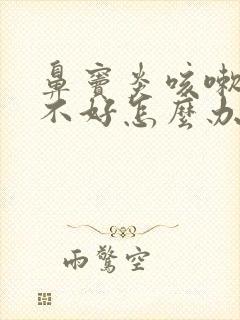 鼻竇炎咳嗽
不好怎麼办
雨驚空